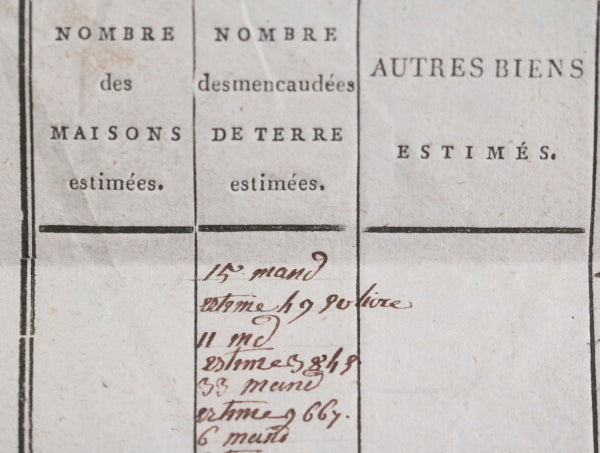 NOMBRE
des
MAISONS
estimées.
NOMBRE
desmencaudées
DE TERRE
estimées.
AUTRES BIENS
ESTIMÉS.
15 mand
estime livre
11 md
estime
33 mand
estime 9667.
6 mand